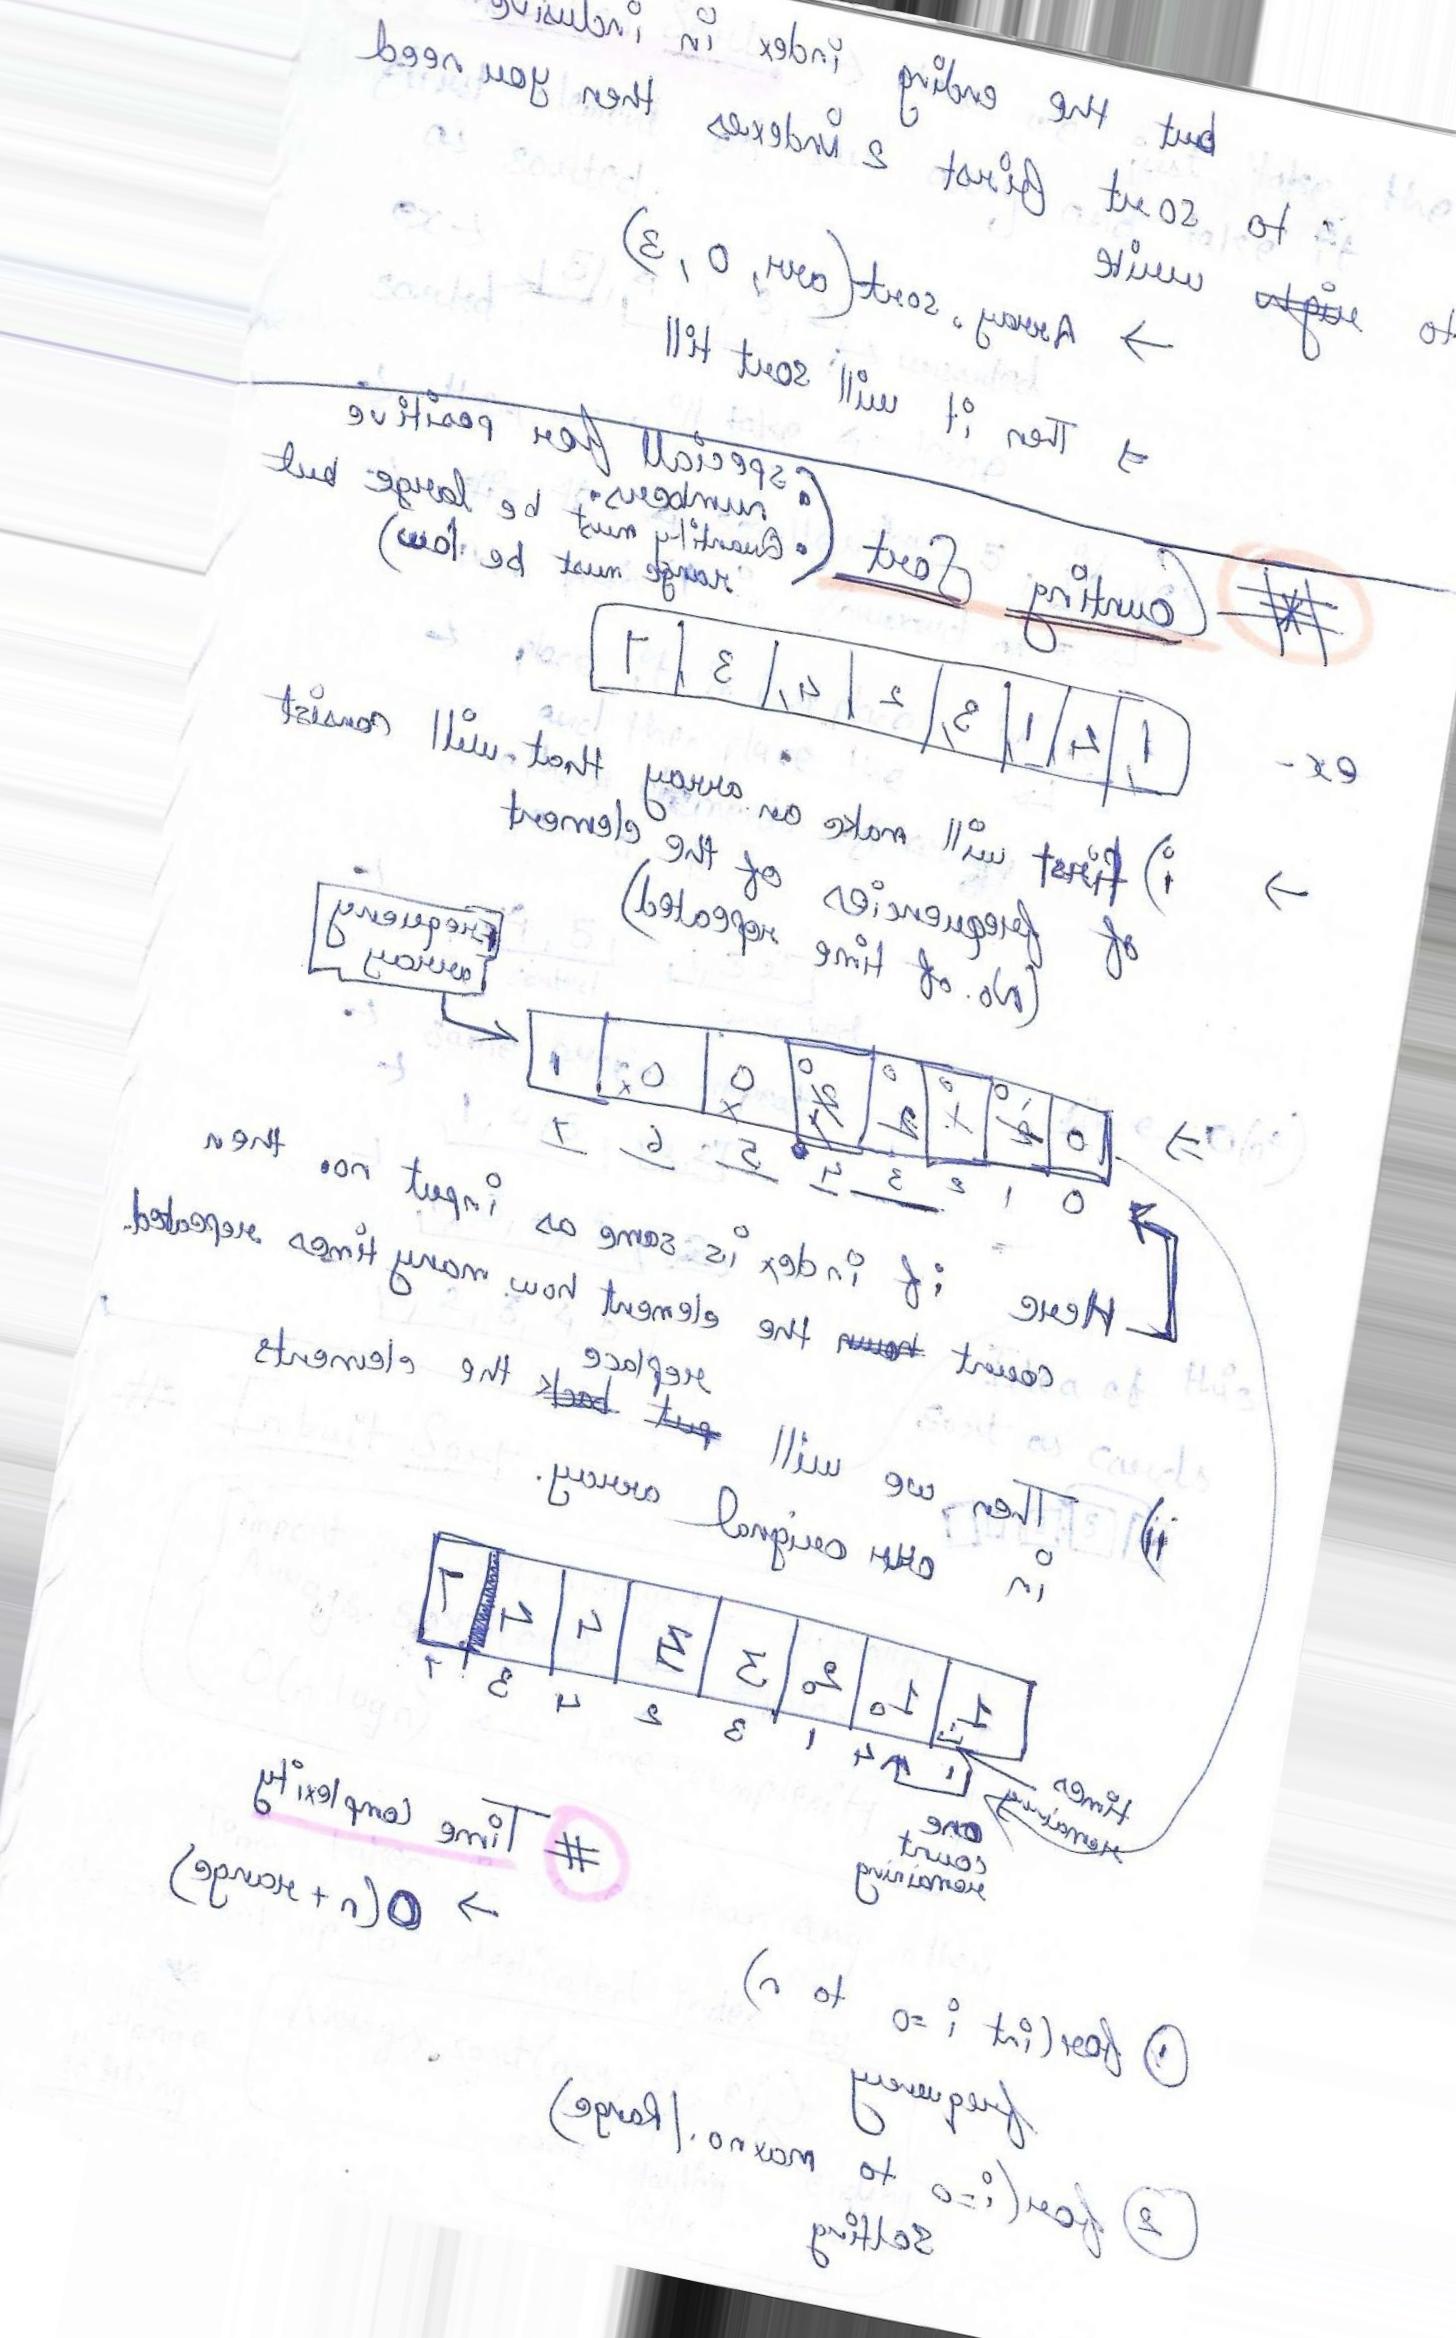 but the ending index in inclusive
∴ to sort first 2 indexes then you need
to write
→ Array.sort(arr, 0, 3)
⇒ Then it will sort till
* Counting Sort (• speciall for positive
numbers.
• Quantity must be large but
range must be low)
ex - 1, 4, 1, 3, 2, 4, 3, 7
→ i) first will make an array that will consist
of frequencies of the element
(No. of time repeated)
Frequency
array
⇒ 0 2 1 2 2 0 0 1
0 1 2 3 4 5 6 7
Here if index is same as input no. then
count the element how many times repeated.
ii) Then we will replace the elements
in our orignal array.
1 1 2 3 3 4 4 7
1 4 1 3 2 4 3 7
times
remaining
one
count
remaining
# Time complexity
→ O(n + range)
① for(int i=0 to n)
frequency
② for(i=0 to max no./Range)